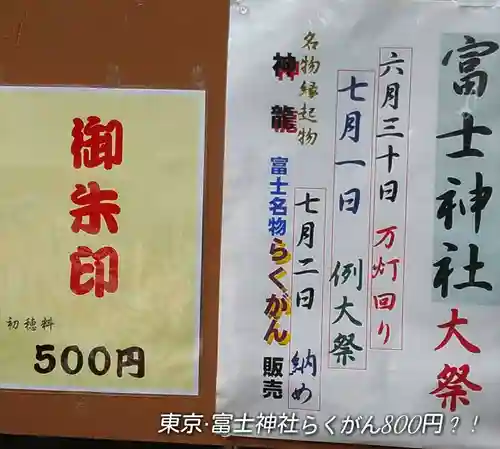 富士神社大祭
六月三十日 万灯回り
七月一日 例大祭
七月二日 納め
名物縁起物
神龍
富士名物らくがん販売
御朱印
初穂料
500円
東京·富士神社らくがん800円?!